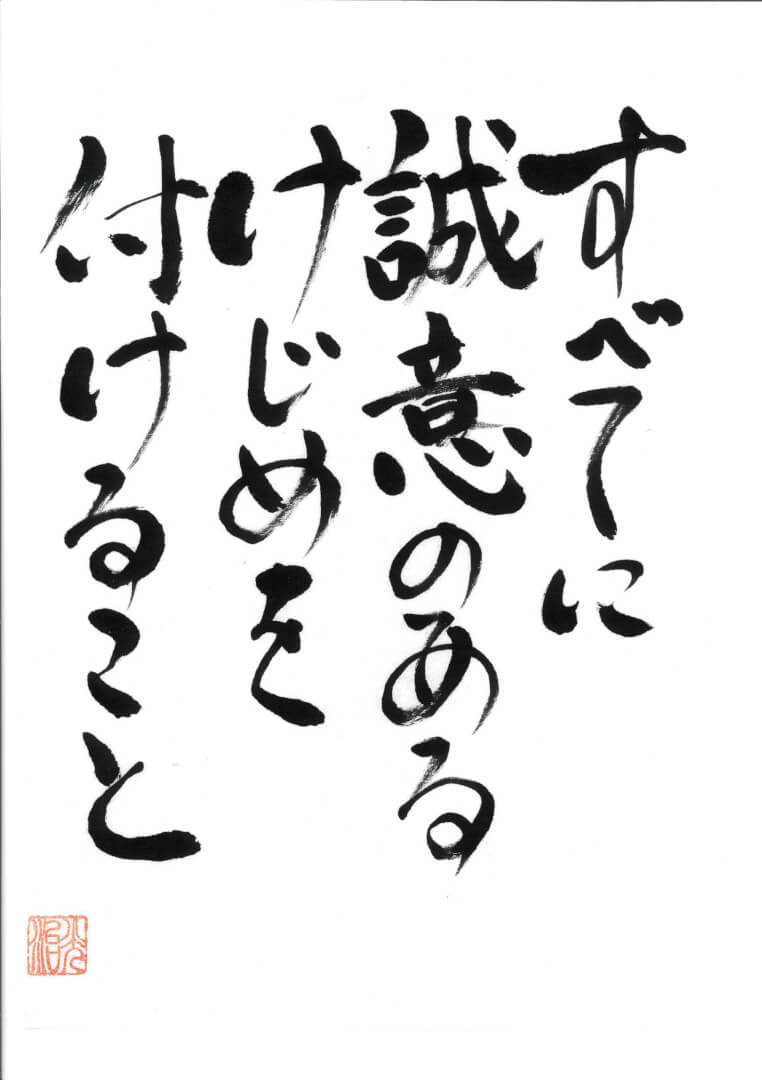 すべてに
誠意のある
けじめを
付けること